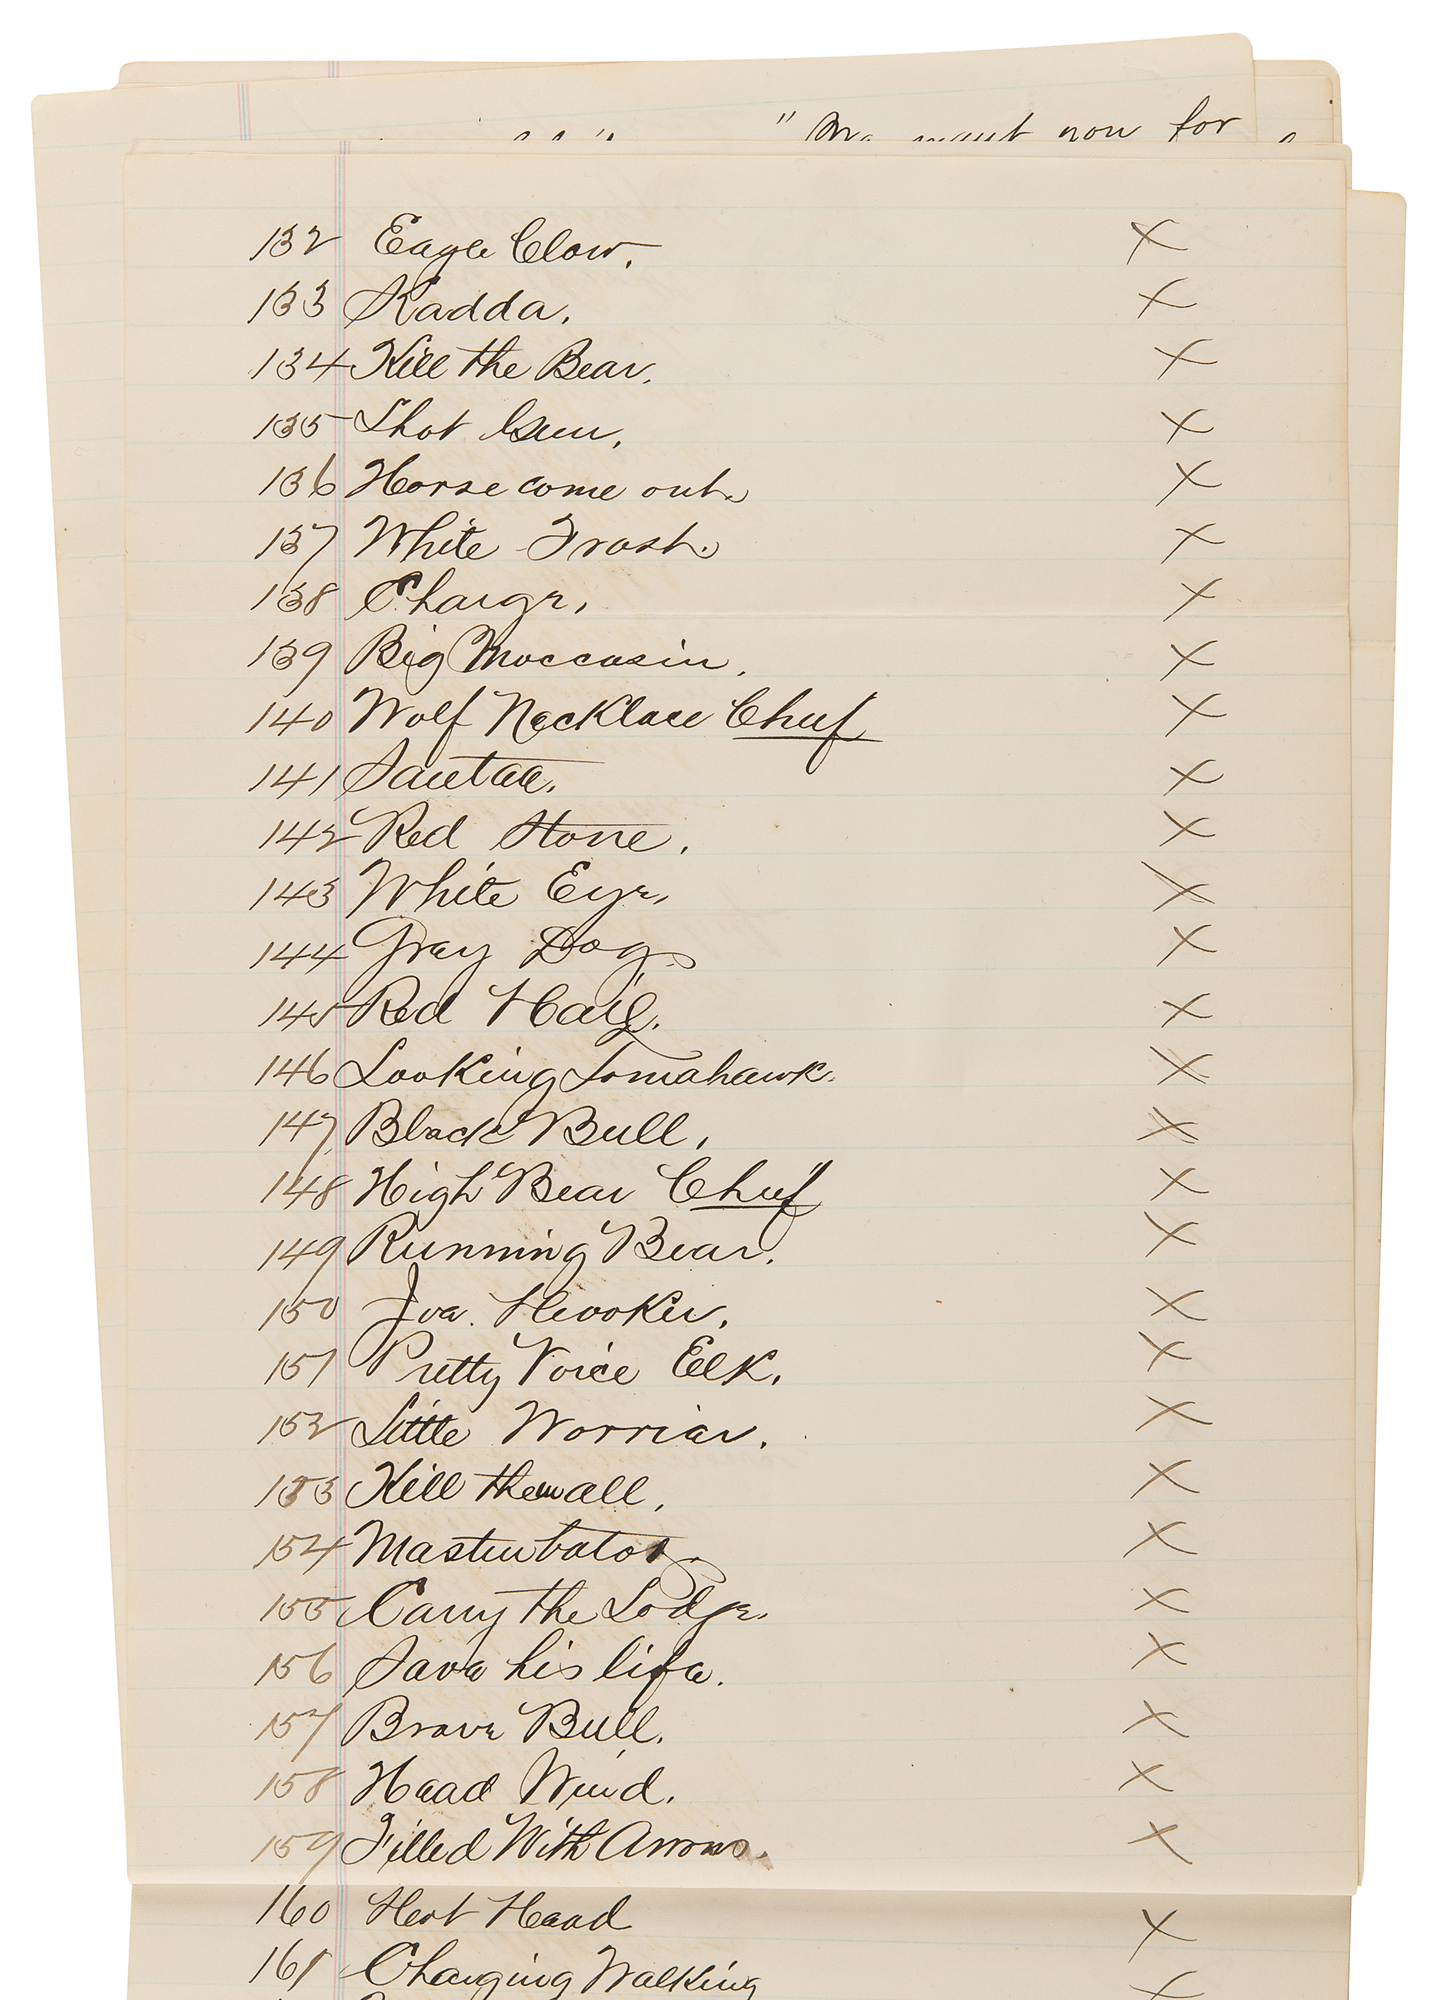 " We want now for
132 Eagle Claw. X
133 Kadda. X
134 Kill the Bear. X
135 Shot Gun. X
136 Horse come out. X
137 White Frost. X
138 Charge. X
139 Big Moccasin. X
140 Wolf Necklace Chief X
141 Santee. X
142 Red Stone. X
143 White Eye. X
144 Gray Dog. X
145 Red Hail. X
146 Looking Tomahawk. X
147 Black Bull. X
148 High Bear Chief X
149 Running Bear. X
150 Joe. Hooker. X
151 Pretty Voice Elk. X
152 Little Worrier. X
153 Kill them all. X
154 Masturbator. X
155 Carry the Lodge. X
156 Save his life. X
157 Brave Bull. X
158 Head Wind. X
159 Filled With Arrows. X
160 Hert Head X
161 Charging Walking X